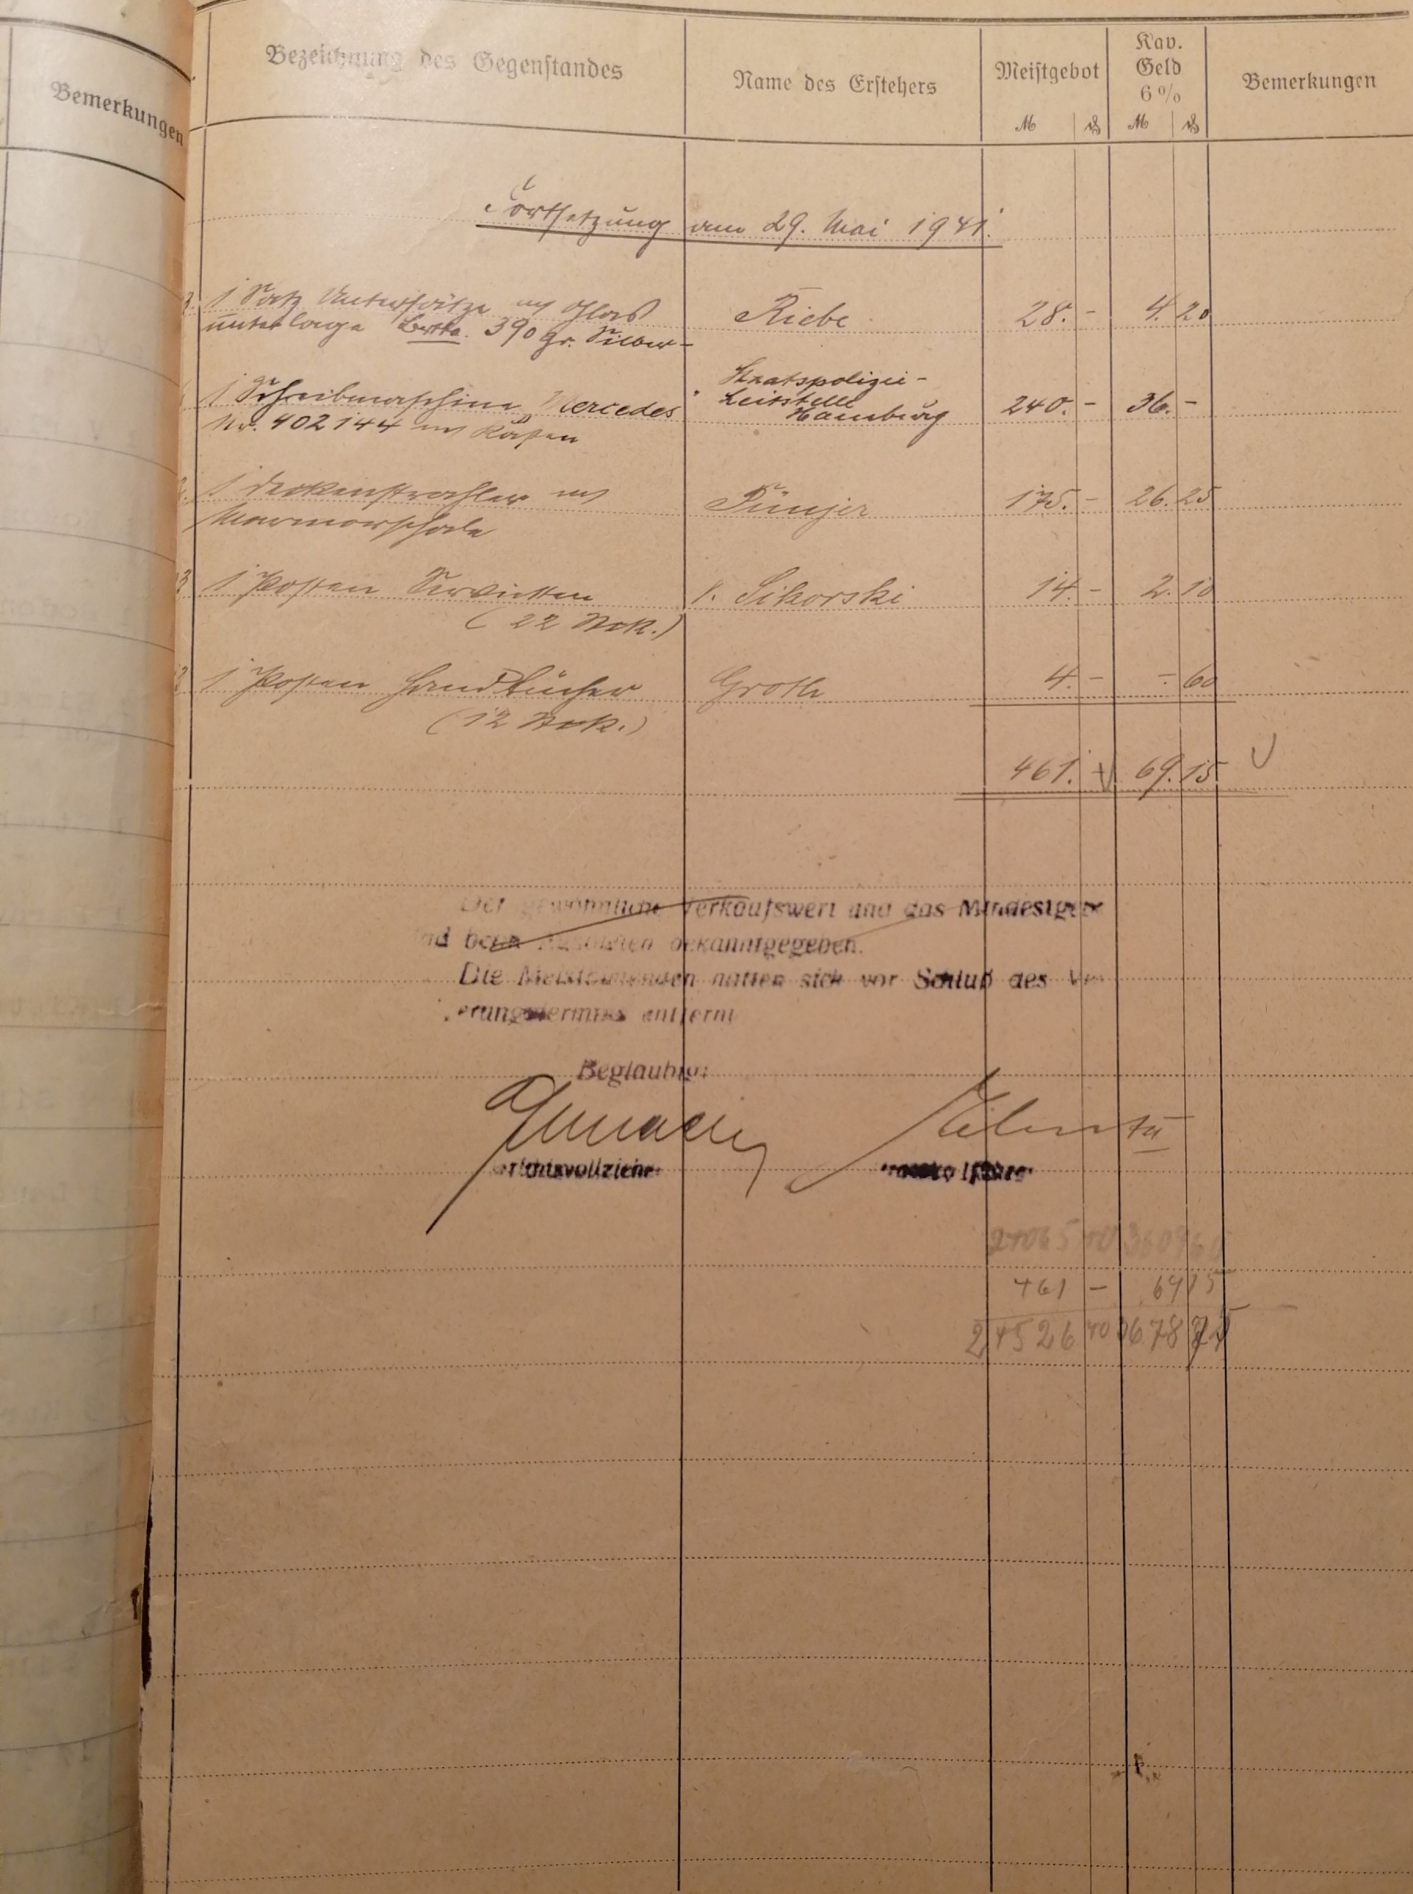 Bemerkungen
Bezeichnung des Gegenstandes
Name des Erstehers
Meistgebot
Kav.
Geld
6%
Bemerkungen
M ₰ M ₰
Fortsetzung am 29. Mai 1941.
1 Satz Untersätze m Glas
unterlage Brtto. 390 gr. Silber- Riebe 28.- 4.20
1 Schreibmaschine „Mercedes" Staatspolizei-
Leitstelle
Nr. 402144 m Kasten Hamburg 240.- 36.-
1 Deckenstrahler m
Marmorschale Pünjer 175.- 26.25
1 Posten Servietten V. Sikorski 14.- 2.10
(22 Stck.)
1 Posten Handtücher Groth 4.- -.60
(12 Stck.)
461.- 69.15
Der gewöhnliche Verkaufswert und das Mindestgebot
sind beim Ausbieten bekanntgegeben.
Die Meistbietenden hatten sich vor Schluß des
entfernt
Beglaubigt
Gerichtsvollzieher
461 - 69 15
24526 40 3678 75